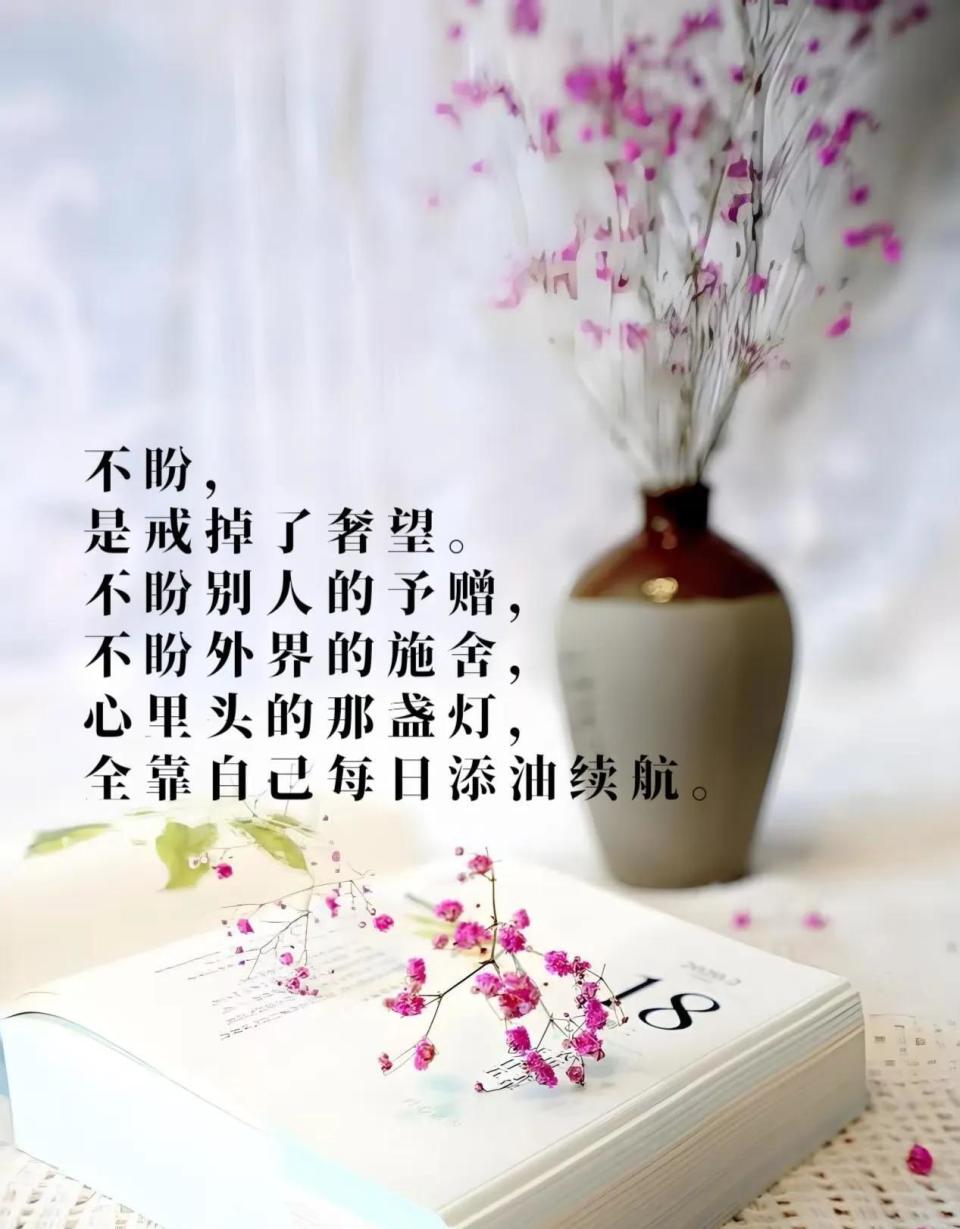 不盼，
是戒掉了奢望。
不盼别人的予赠，
不盼外界的施舍，
心里头的那盏灯，
全靠自己每日添油续航。
18